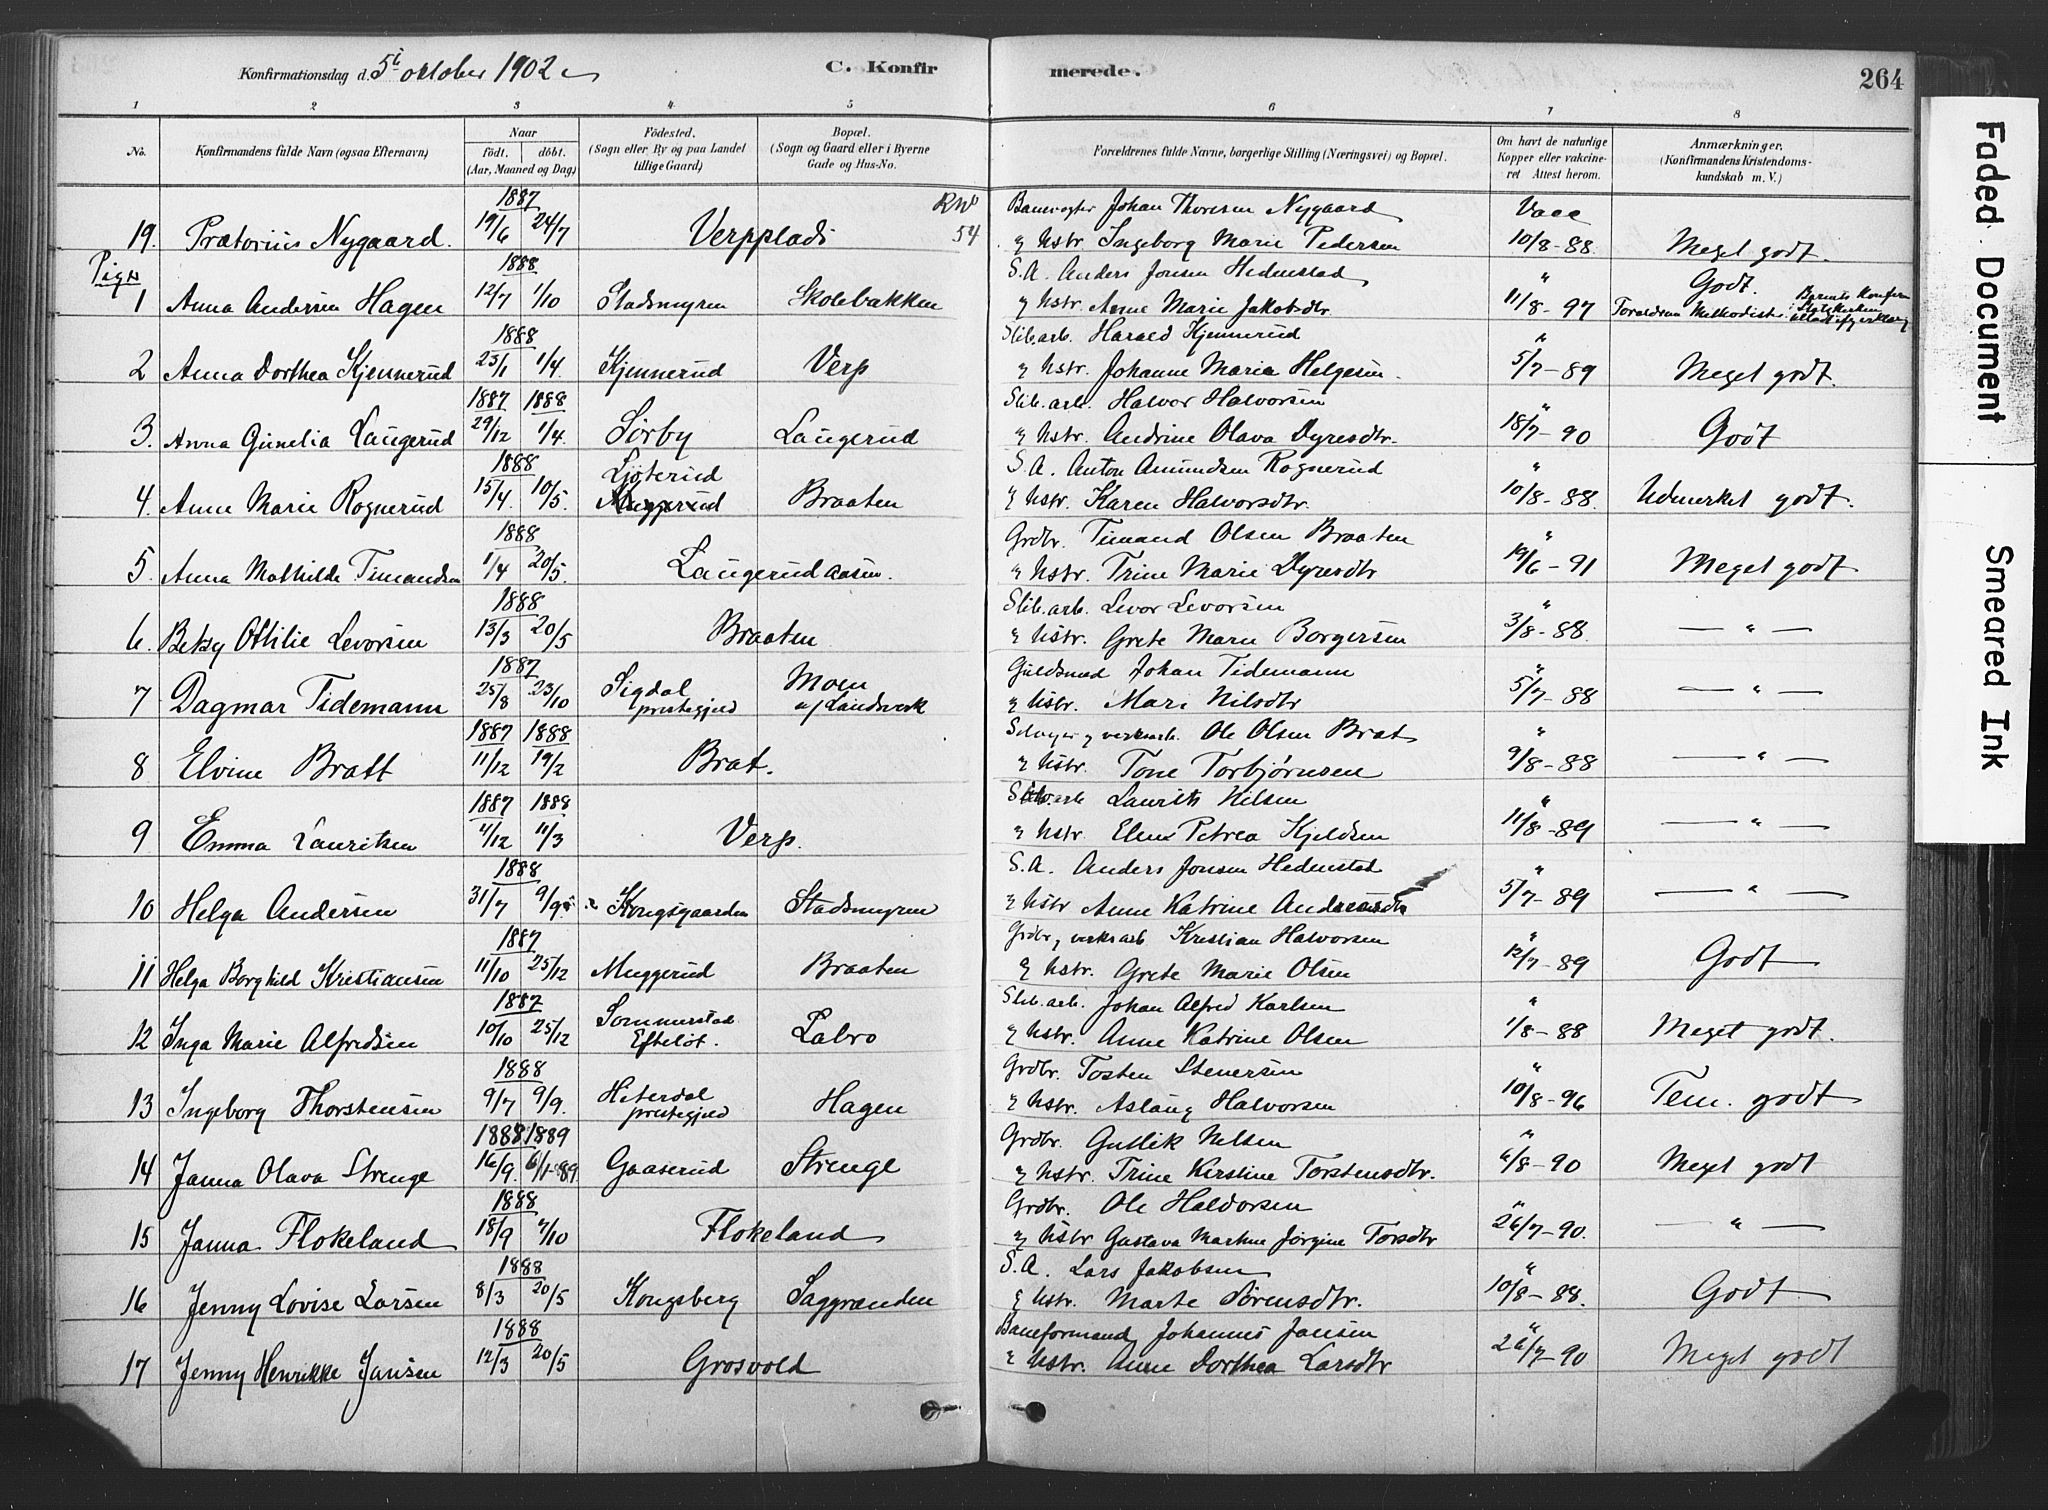 Konfirmationsdag d. 5te oktober 1902
C. Konfir merede. 264
1 2 3 4 5 6 7 8
No. Konfirmandens fulde Navn (ogsaa Efternavn) Naar født. døbt. (Aar, Maaned og Dag) Fødested. (Sogn eller By og paa Landet tillige Gaard) Bopæl. (Sogn og Gaard eller i Byerne Gade og Hus-No. Forældrenes fulde Navne, borgerlige Stilling (Næringsvei) og Bopæl. Om havt de naturlige Kopper eller vakcineret Attest herom. Anmærkninger. (Konfirmandens Kristendomskundskab m. V.)
1887 Banevogter Johan Thoresen Nygaard Vacc
19. Prætorius Nygaard. 19/6 24/7 Verpplads 54 & Hstr. Ingeborg Marie Pedersen 10/8-88. Meget godt.
Piger 1888 S.A. Anders Jonsen Hedenstad " Godt.
1 Anna Andersen Hagen 12/7 1/10 Stadsmyren Skolebakken & Hstr. Anne Marie Jakobsdtr. 11/8-97 Forældrene Methodister
1888 Slib.arb. Harald Kjennerud "
2 Anna Dorthea Kjennerud 23/1 1/4. Kjennerud Verp & Hstr. Johanne Maria Helgesen 5/7-89 Meget godt.
1887 1888 Slib.arb. Halvor Halvorsen "
3. Anna Gunelia Laugerud 29/12 1/4. Sørby Laugerud & Hstr. Andrine Olava Dyresdtr. 18/7-90 Godt
1888 Ljøterud S.A. Anton Amundsen Rognerud "
4. Anne Marie Rognerud 15/4. 10/5. Muggerud Braaten & Hstr. Karen Halvorsdtr. 10/8-88. Udmerket godt.
1888 Grdbr. Timand Olsen Braaten "
5. Anna Mathilde Timandsen 1/4 20/5. Laugerudaasen. & Hstr. Trine Marie Dyresdtr 19/6-91 Meget godt
1888 Slib.arb. Levor Levorsen "
6. Betsy Othilie Levorsen 13/3 20/5 Braaten & Hstr. Grete Marie Borgersen 3/8-88. — " —
1887 Sigdal Moen Guldsmed Johan Tidemann "
7 Dagmar Tidemann 25/8 23/10 prestegjeld u/ Landsverk & Hstr. Mari Nilsdtr 5/7-88 — " —
1887 1888 Selveier & verksarb. Ole Olsen Brat "
8 Elvine Bratt 11/12 19/2 Brat. & Hstr. Tone Torbjørnsen 9/8-88 — " —
1887 1888 Slib.arb Laurits Nilsen "
9 Emma Lauritsen 4/12 11/3 Verp. & Hstr. Elen Petrea Kjeldsen 11/8-89 — " —
1888 S.A. Anders Jonsen Hedenstad "
10 Helga Andersen 31/7 9/9 Kongsgaarden Stadsmyren & Hstr Anne Katrine Andreasdtr 5/7-89 — " —
1887 Grdbr, verksarb Kristian Halvorsen "
11 Helga Borghild Kristiansen 11/10 25/12 Muggerud Braaten & Hstr. Grete Marie Olsen 12/7-89 Godt
1887 Sommerstad Slib.arb. Johan Alfred Karlsen "
12 Inga Marie Alfredsen 10/10 25/12 Efteløt. Labro & Hstr. Anne Katrine Olsen 1/8-88 Meget godt.
1888 Hiterdal Grdbr. Tosten Stenersen "
13 Ingeborg Thorstensen 9/7 9/9. prestegjeld Hagen & Hstr. Aslaug Halvorsen 10/8-96 Tem. godt
1888 1889 Grdbr. Gullik Nilsen "
14 Janna Olava Strenge 16/9. 6/1-89. Gaaserud Strenge & Hstr. Trine Kirstine Torstensdtr. 6/8-90 Meget godt
1888 Grdbr. Ole Haldorsen "
15 Janna Flokeland 18/9 7/10 Flokeland & Hstr Gustava Martine Jørgine Torsdtr 26/7-90. — " —
1888 S.A. Lars Jakobsen "
16 Jenny Lovise Larsen 8/3 20/5 Kongsberg Saggrenden & Hstr. Marte Sørensdtr. 10/8-88. Godt
1888 Baneformand Johannes Jansen "
17 Jenny Henrikke Jansen 12/3 20/5 Grosvold & Hstr. Anne Dorthea Larsdtr 26/7-90 Meget godt
Faded Document
Smeared Ink